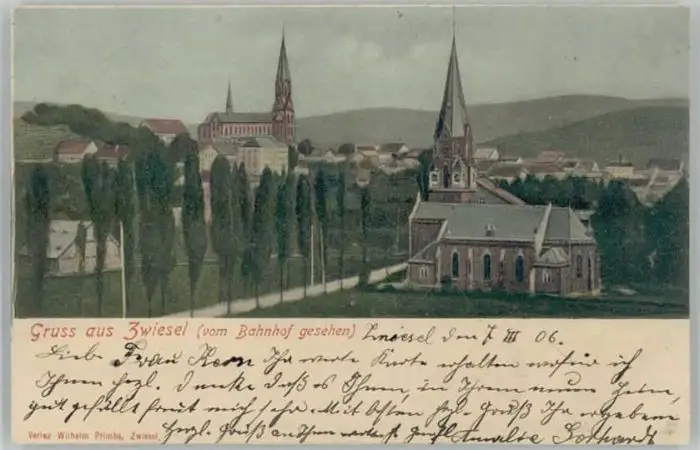 Gruss aus Zwiesel (vom Bahnhof gesehen) Zwiesel den 7 III 06.
Liebe Frau Kern Ihr werte Karte erhalten wofür ich
Ihnen hzl. Danke daß es Ihnen, in Ihrem neuen Heim,
gut gefällt freut mich sehr. Mit hzl. Gruß Ihr ergebene
Verlag Wilhelm Primbs, Zwiesel. Herzl. Gruß an Ihren werten Amalie Gotthardt